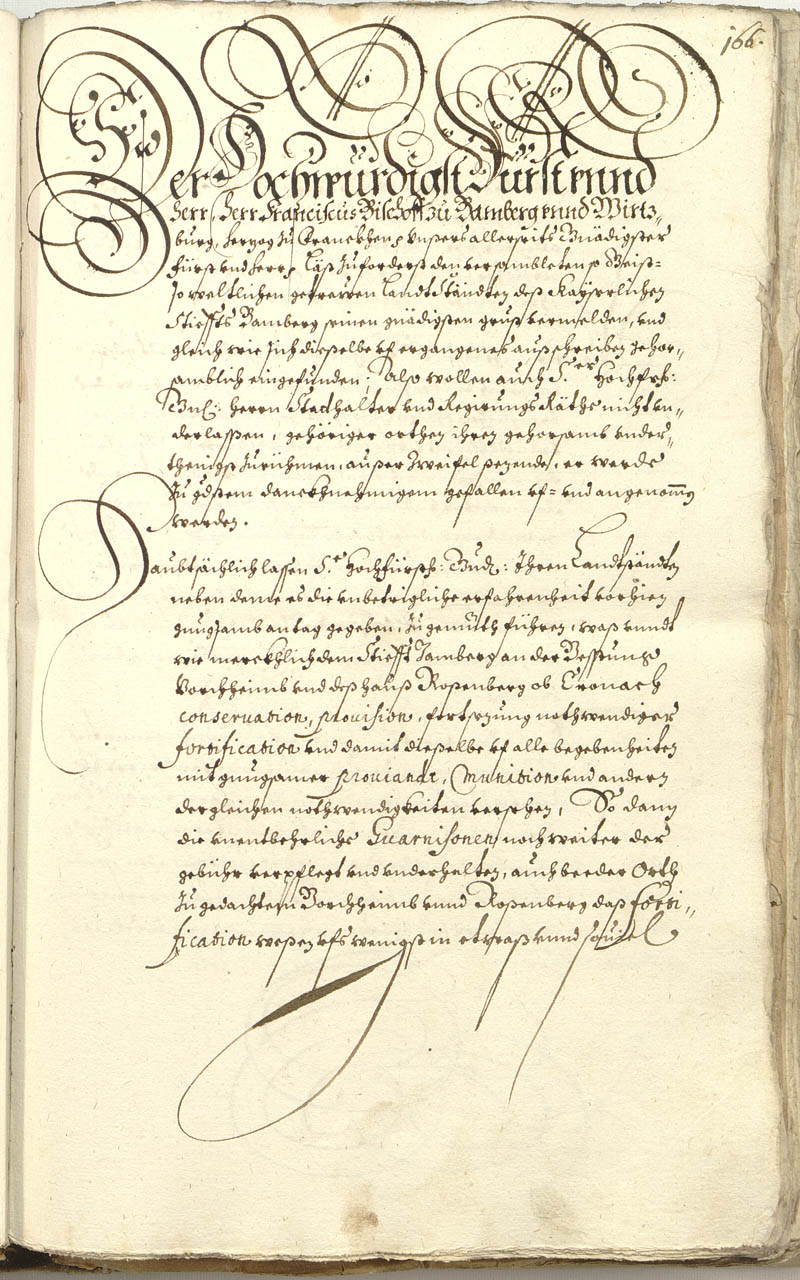 166.
Der Hochwürdigst Fürst unnd
Herr, Herr Franciscus Bischoff zu Bamberg unnd Wirtz=
burg, Herzog zu Franckhen, unßers allerseits Gnädigster
Fürst und Herr, läst zuforderst den versambleten so Geist=
so weltlichen getrewen Landt Ständten deß Kayserlichen
Stieffts Bamberg seinen gnädigsten gruß vermelden, und
gleich wie sich dieselbe uf ergangenes außschreiben gehor=
samblich eingefunden; Also wollen auch S.er Hochfrl:
Gnd: Herrn Statthalter und Regirungs Räthe nicht un=
derlaßen, gehöriger orthen ihren gehorsamb under=
thenigst zurühmen, außer Zweifel sezende, er werde
zu gdstem danckhnehmigem gefallen uf= und angenommen
werden.
Haubtsächlich lassen S.e Hochfürstl: Gnd: Ihren Landtständten
neben deme es die unbetrigliche erfahrenheit vorhien
gnugsamb an tag gegeben, zu gemüth führen, waß unndt
wie merckhlich dem Stiefft Bamberg an der Vestung
Vorchheimb und deß hauß Roßenberg ob Cronach
conservation, provision, fortsezung nothwendiger
fortification und damit dieselbe uf alle begebenheiten
mit gnugsamer proviandt, Munition und andern
dergleichen nothwendigkeiten versehen, So dann
die unentbehrliche Guarnisonen noch weiter der
gebühr verpflegt und underhalten, auch beeder Orth
zu gedachtem Vorchheimb unnd Roßenberg daß forti=
fication weßen ufs wenigst in etwaß unnd souiel